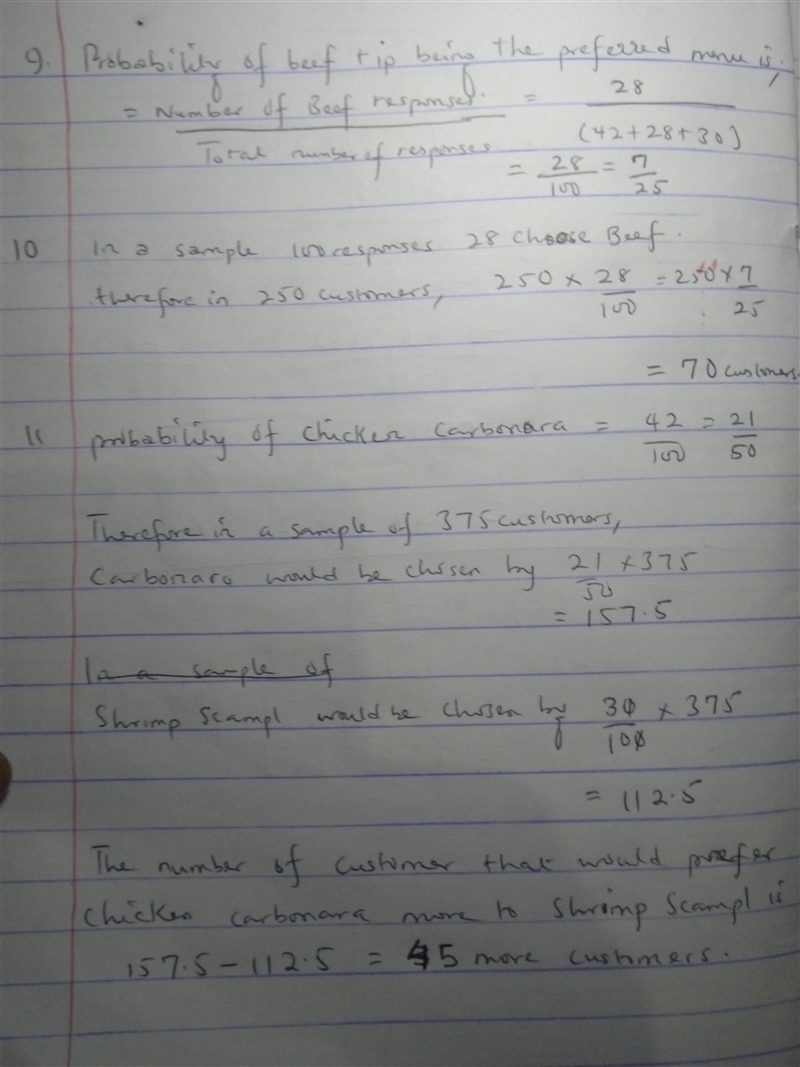 9. Probability of beef tip being the preferred menu is,
= Number of Beef responses / Total number of responses = 28 / (42+28+30)
= 28/100 = 7/25
10 In a sample 100 responses 28 choose Beef.
therefore in 250 customers, 250 × 28/100 = 250 × 7/25
= 70 customers.
11 probability of chicken carbonara = 42/100 = 21/50
Therefore in a sample of 375 customers,
Carbonaro would be chosen by 21/50 × 375
= 157.5
In a sample of
Shrimp Scampl would be chosen by 30/100 × 375
= 112.5
The number of customer that would prefer
chicken carbonara more to Shrimp Scampl is
157.5 - 112.5 = 45 more customers.